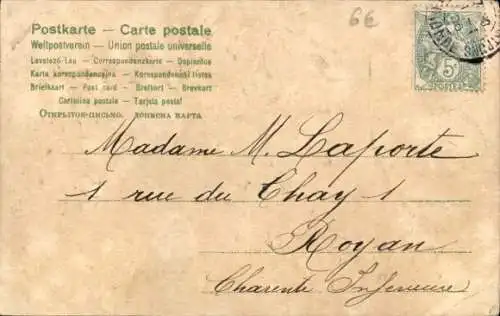 Postkarte — Carte postale
Weltpostverein — Union postale universelle
Levelező-Lap — Correspondenzkarte — Dopisnice
Karta korespondencyjna — Korespondenční lístek
Briefkaart — Post card — Brefkort — Brevkort
Cartolina postale — Tarjeta postal
Открытое письмо.
6E
5
Madame M. Laporte
1 rue du Chay 1
Royan
Charente Inferieure